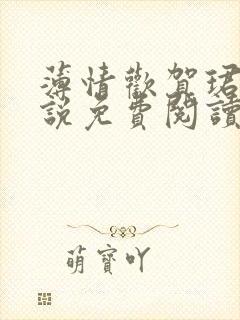 薄情歡賀珺
說免費閱讀
萌寶吖